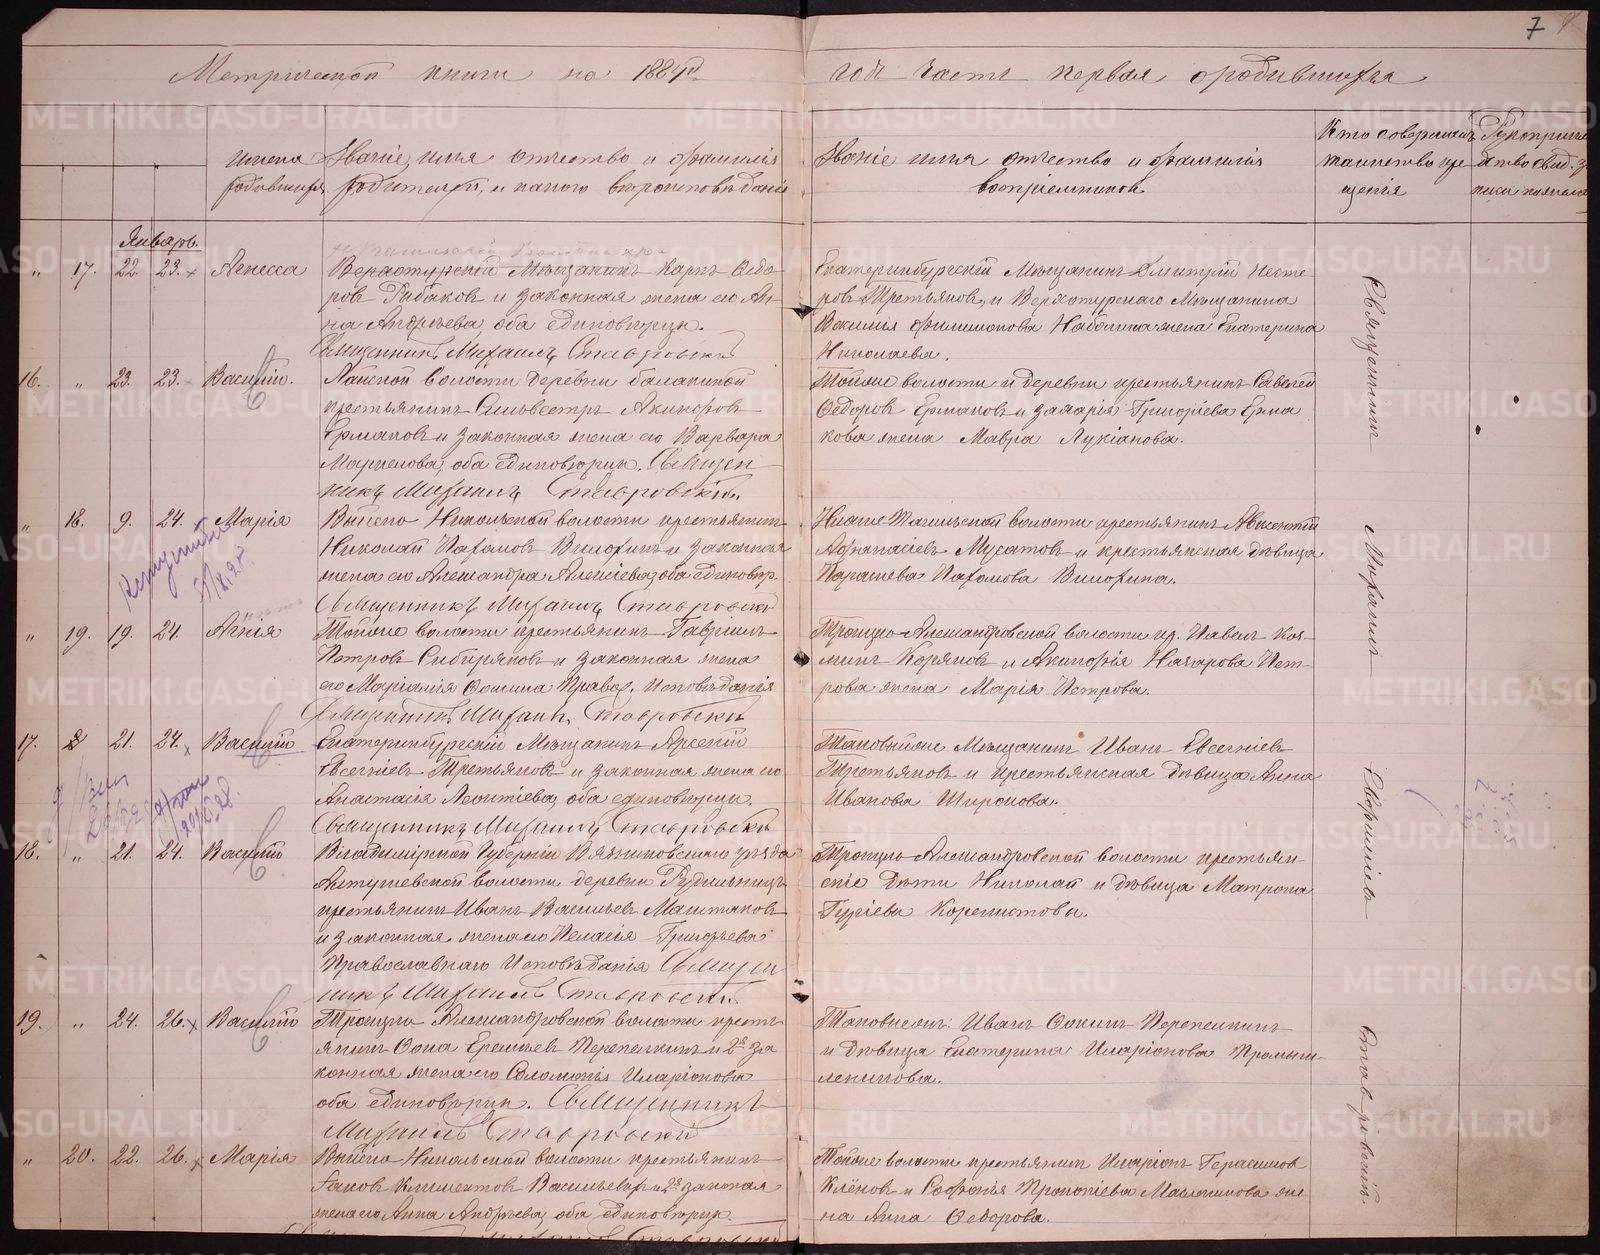 7
Метрической книги на 1884й
год часть первая о родившихся
Имена
родившихся
Званіе, имя, отчество и фамилія
родителей, и какого вероисповѣданія
Званіе имя отчество и фамилія
воспріемниковъ
Кто совершалъ
таинство кре
щенія
Январь.
" 17. 22. 23. Агнесса
Верхотурскій Мѣщанинъ Карпъ Ѳедо-
ровъ Рыбаковъ и законная жена его Ан-
на Андреева, оба единоверцы.
Священникъ Михаилъ Ставровскій
Екатеринбургскій Мѣщанинъ Дмитрій Несте-
ровъ Третьяковъ, и Верхотурскаго Мѣщанина
Василія Филимонова Набокина жена Екатерина
Николаева.
16. " 23. 23. Василій.
Лайской волости деревни Балакиной
крестьянинъ Сильвестръ Акинфовъ
Ермаковъ и законная жена его Варвара
Маркелова, оба единоверцы. Священ
никъ Михаилъ Ставровскій.
Тойже волости и деревни крестьянинъ Савелій
Ѳедоровъ Ермаковъ и Захарія Григоріева Ерма
кова жена Мавра Лукіанова.
" 18. 9. 24. Марія
Выйско Никольской волости крестьянинъ
Николай Пахомовъ Вилохинъ и законная
жена его Александра Алексіева, оба единовер.
Священникъ Михаилъ Ставровскій
Нижне Тагильской волости крестьянинъ Авксентій
Афанасіевъ Мусатовъ и крестьянская дѣвица
Парасkева Пахомова Вилохина.
" 19. 19. 24. Агнія
Тойже волости крестьянинъ Гавріилъ
Петровъ Сибиряковъ и законная жена
его Маріамія Ѳомина Правос. Исповѣданія
Священникъ Михаилъ Ставровскій
Троицко-Александровской волости кр. Павелъ Коз-
минъ Коряковъ и Акинфія Назарова Пет-
рова жена Марія Петрова.
17. 21. 24. Василій
Екатеринбургскій Мѣщанинъ Арсеній
Евсегніевъ Третьяковъ и законная жена его
Анастасія Леонтіева, оба единоверцы.
Священникъ Михаилъ Ставровскій
Таковыйже Мѣщанинъ Иванъ Евсегніевъ
Третьяковъ и крестьянская дѣвица Анна
Иванова Широкова.
18. " 21. 24. Василій
Владимірской Губерніи Вязниковскаго уѣзда
крестьянинъ Иванъ Васильевъ Маштаковъ
и законная жена его Пелагія Григорьева
Православнаго Исповѣданія Священ
никъ Михаилъ Ставровскій
Троицко-Александровской волости крестьян-
скіе дѣти Николай и дѣвица Матрона
Гуріевы Корепистовы.
19. " 24. 26. Василій
Троицко-Александровской волости кресть
янинъ Ѳома Еремѣевъ Перепелкинъ и 2я за
конная жена его Соломонія Иларіонова
оба единоверцы. Священникъ
Михаилъ Ставровскій
Таковыежъ: Иванъ Ѳоминъ Перепелкинъ
и дѣвица Екатерина Иларіонова Промыш-
ленникова.
" 20. 22. 26. Марія
Выйско-Никольской волости крестьянинъ
Іаковъ Климентовъ Васильевъ и 2я законная
жена его Анна Андреева, оба единоверцы.
Тойже волости крестьянинъ Иларіонъ Герасимовъ
Клёновъ и Софонъя Прокопіева Масленникова же
на Анна Ѳедорова.
Священникъ Михаилъ Ставровскій
METRIKI.GASO-URAL.RU